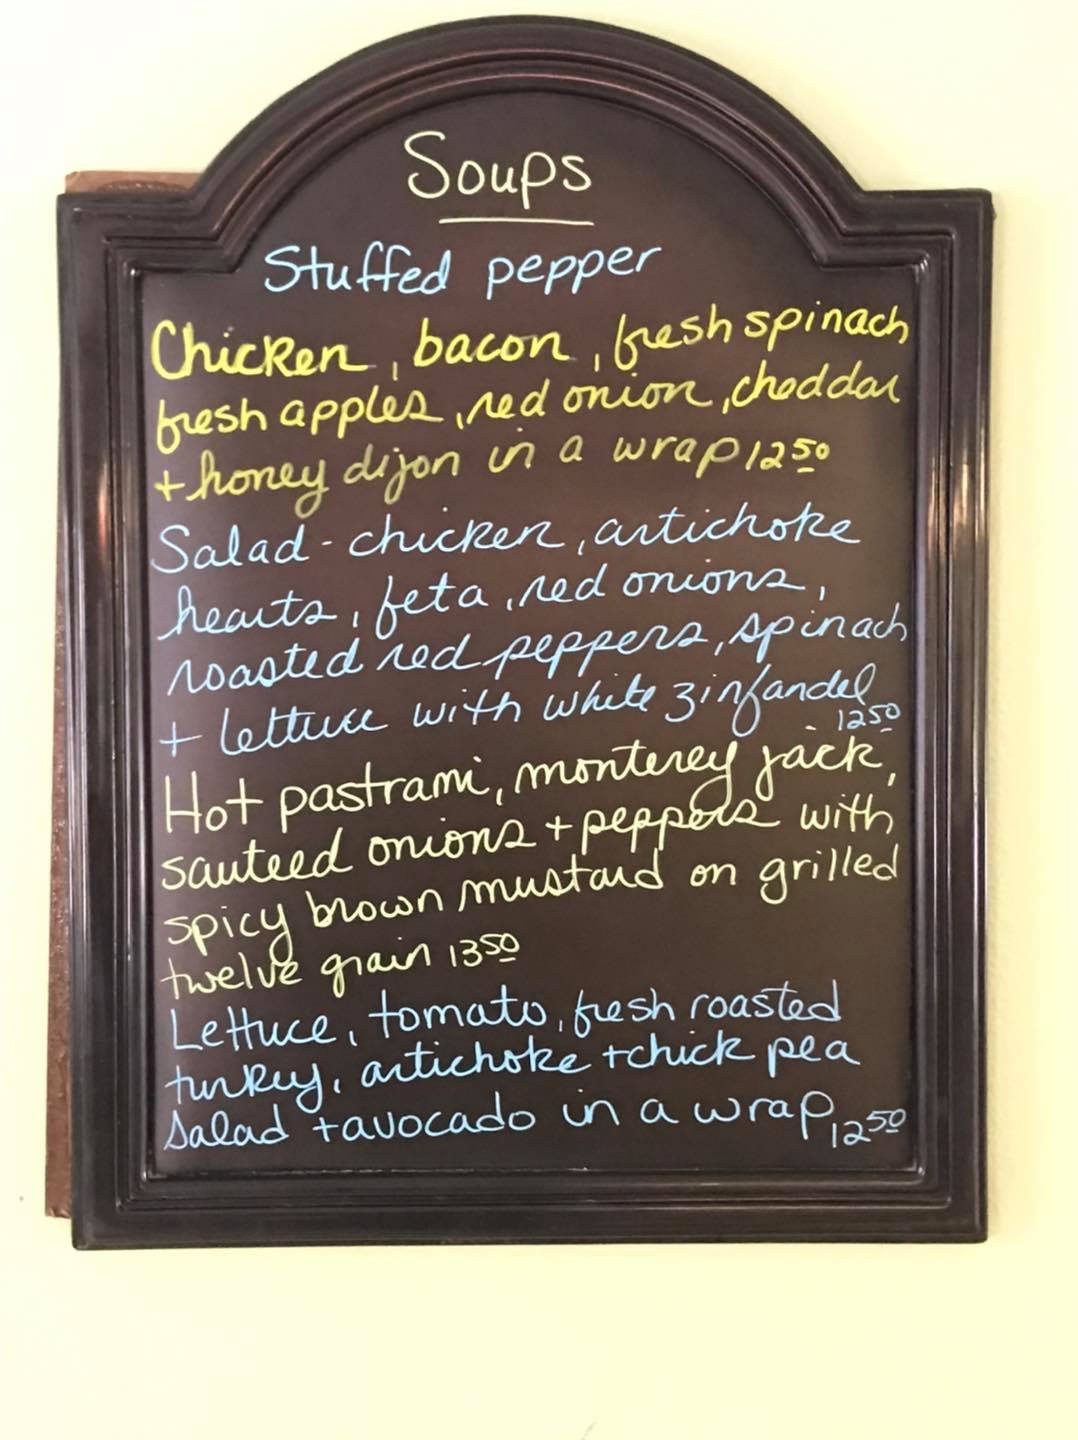 Soups
Stuffed pepper
Chicken, bacon, fresh spinach
fresh apples, red onion, cheddar
+ honey dijon in a wrap 12 50
Salad - chicken, artichoke
hearts, feta, red onions,
roasted red peppers, spinach
+ lettuce with white zinfandel
12 50
Hot pastrami, monterey jack,
sauteed onions + peppers with
spicy brown mustard on grilled
twelve grain 13 50
Lettuce, tomato, fresh roasted
turkey, artichoke + chick pea
salad + avocado in a wrap 12 50